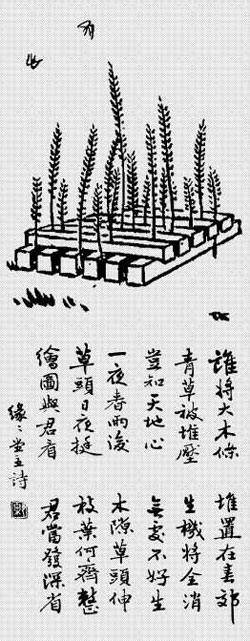 誰將大木條 堆置在春郊
青草被堆壓 生機將全消
豈知天地心 無處不好生
一夜春雨後 木隙草頭伸
草頭日夜挺 枝葉何齊整
繪圖與君看 君當發深省
緣〻堂主詩